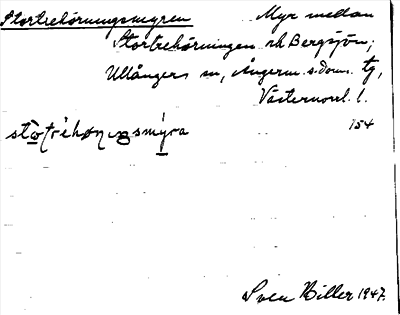 Stortrehörningsmyren Myr mellan
Stortrehörningen och Bergsjön;
Ullångers sn, Ångerm. s. doms. tg,
Västernorrl. l.
154
Sven Biller 1947.